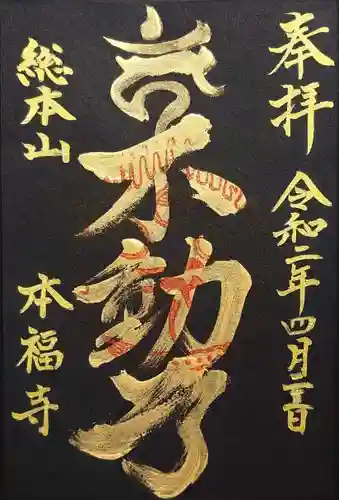 奉拝
令和二年四月三日
不動了
総本山
本福寺